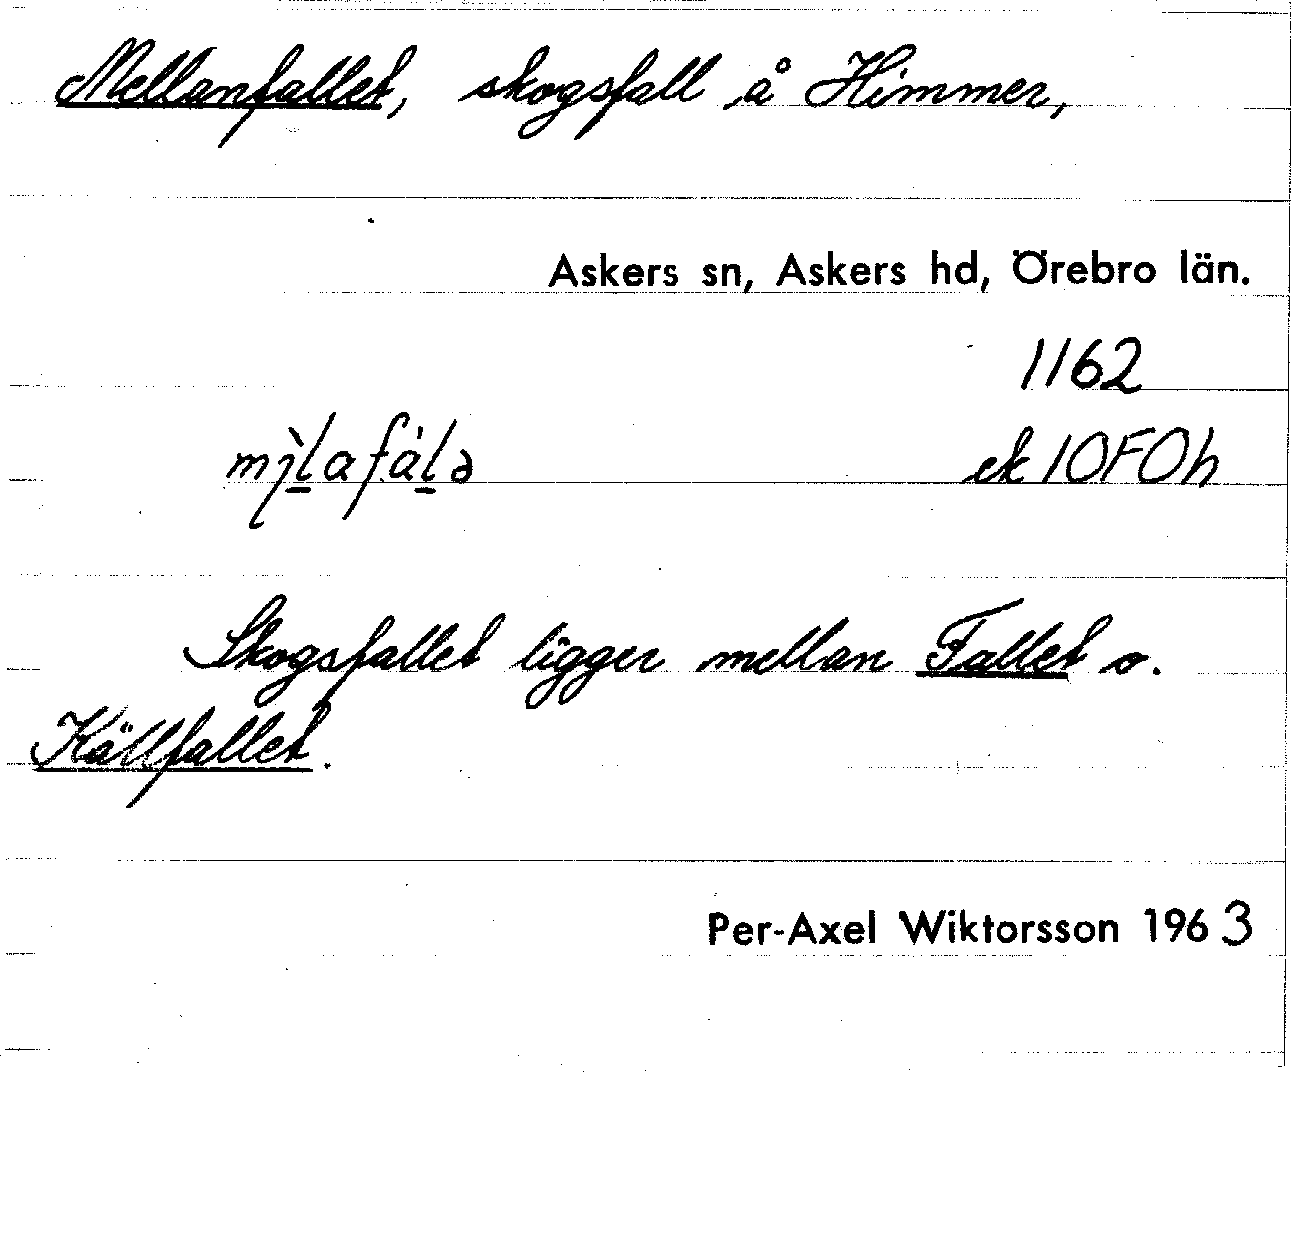 Mellanfallet, skogsfall å Himmer,
Askers sn, Askers hd, Örebro län.
1162
ek 10F0h
Skogsfallet ligger mellan Fallet o.
Källfallet.
Per-Axel Wiktorsson 1963